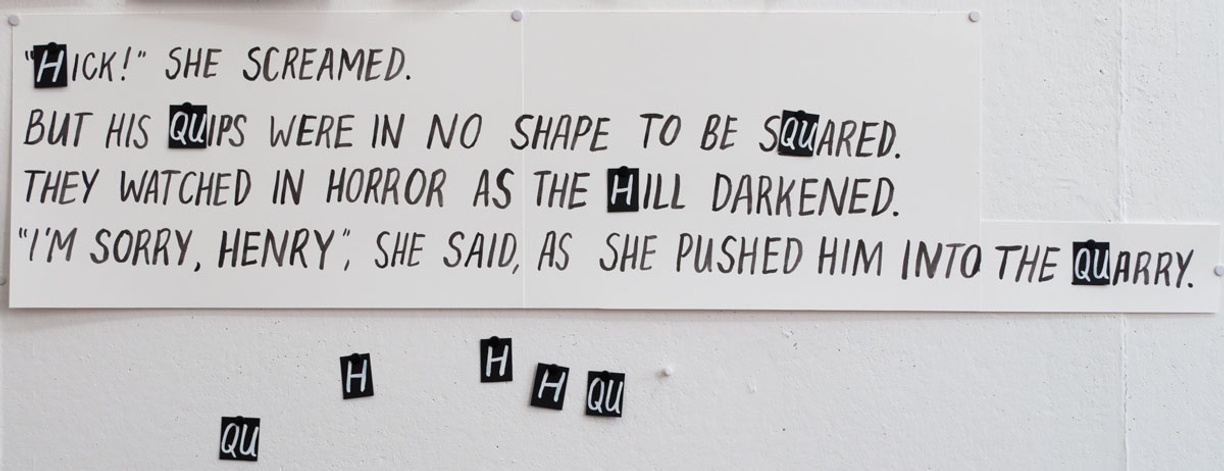 "HICK!" SHE SCREAMED.
BUT HIS QUIPS WERE IN NO SHAPE TO BE SQUARED.
THEY WATCHED IN HORROR AS THE HILL DARKENED.
"I'M SORRY, HENRY", SHE SAID, AS SHE PUSHED HIM INTO THE QUARRY.
H H
H QU
QU